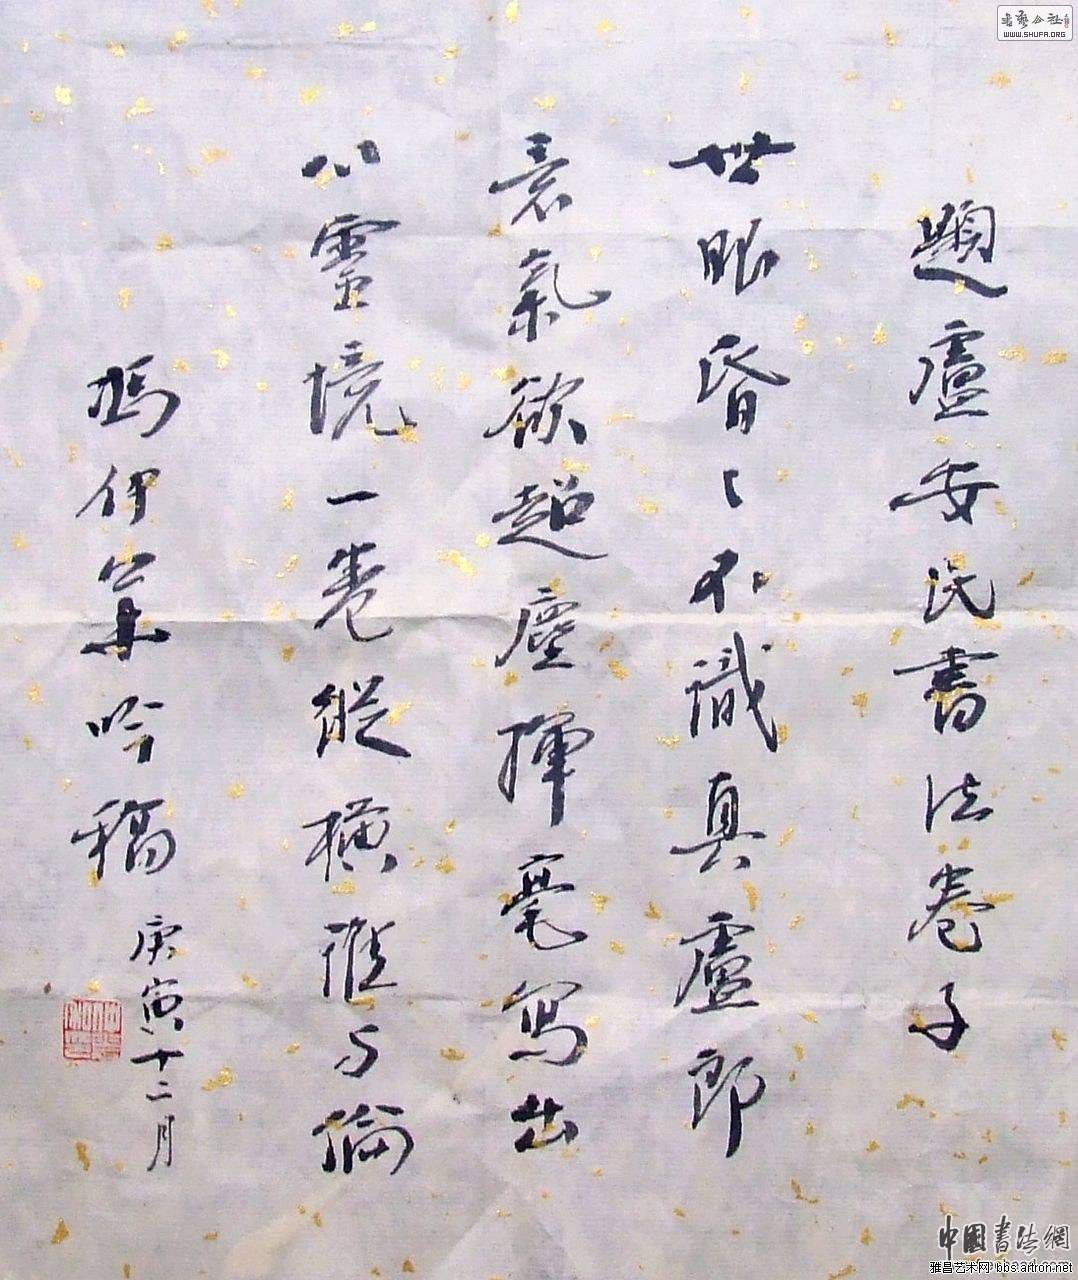 題盧安民書法卷子
世眼昏々不識真盧郎
意氣欲超塵揮毫寫出
心靈境一卷縱橫誰与倫
馮吟稿
庚寅十二月
书艺公社
WWW.SHUFA.ORG
中國書法網
雅昌艺术网 bbs.artron.net